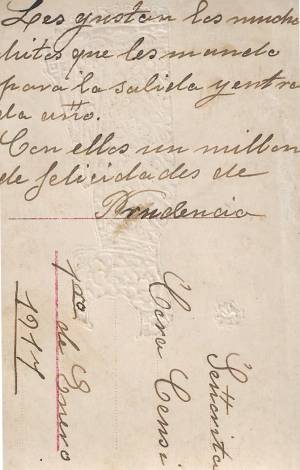 Les gustan los mucha
chitos que les mando
para la salida y entra
da año.
Con ellos un millon
de felicidades de
Prudencio
Señorita
Cara Censi
1ro de Enero
1917